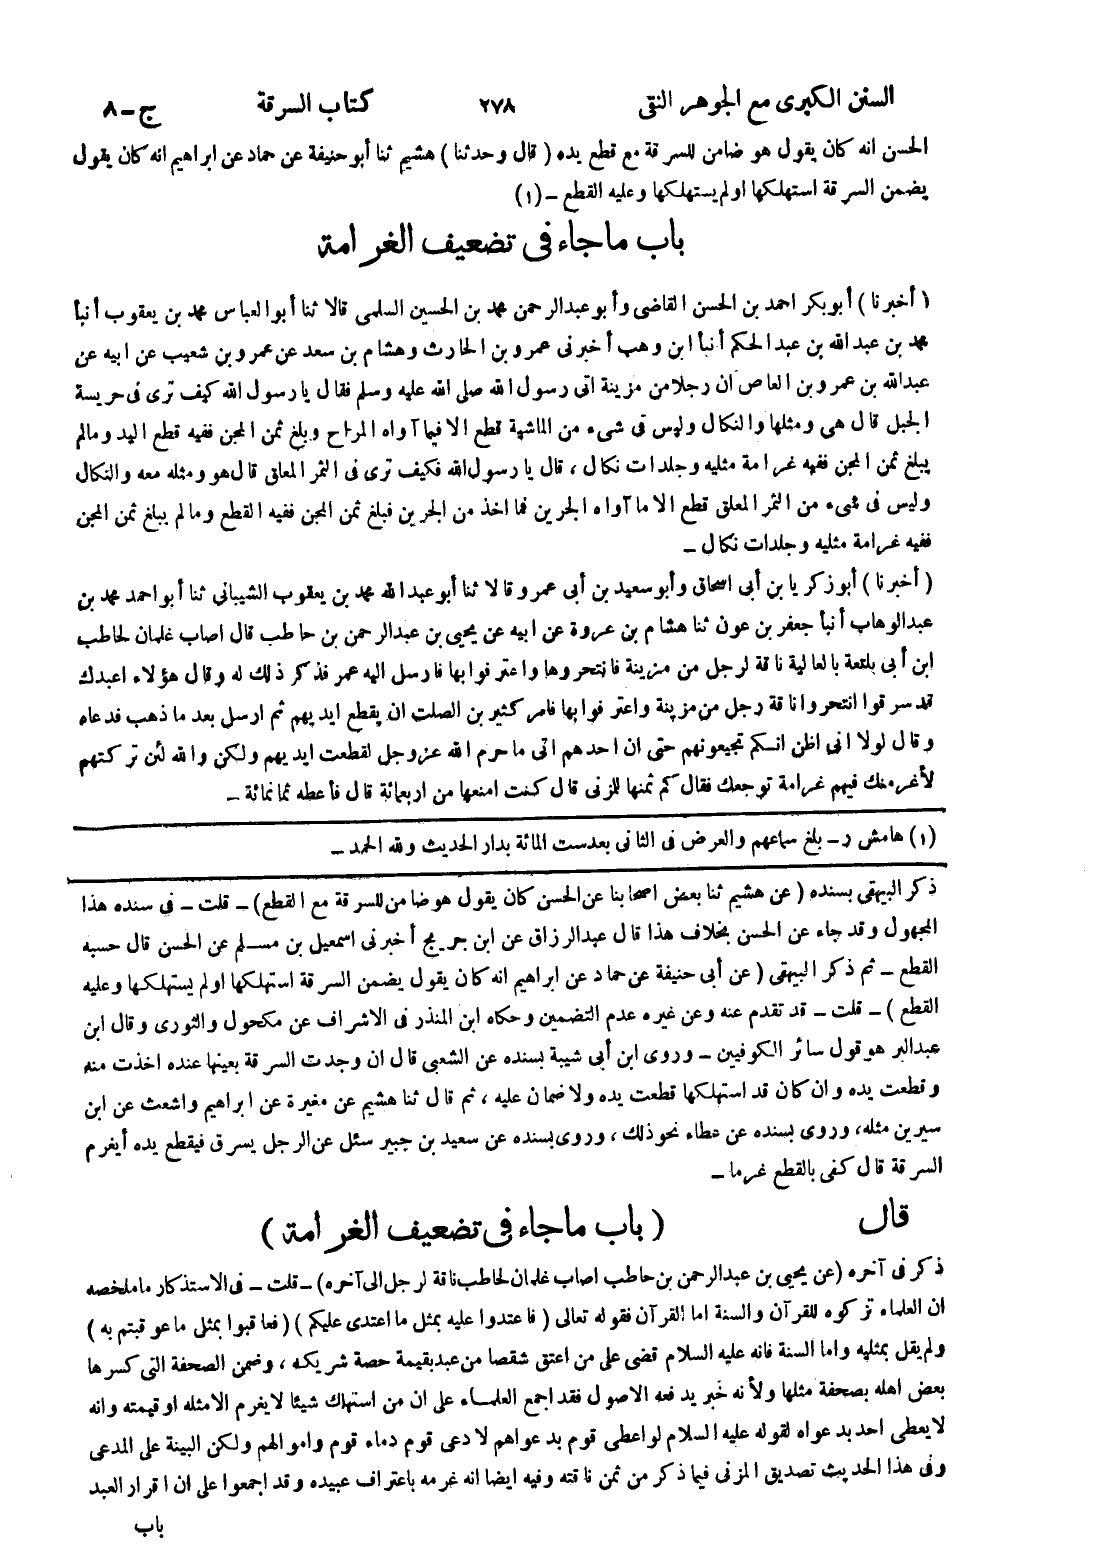 السنن الكبرى مع الجوهر النقى ٢٧٨ كتاب السرقة ج-٨
الحسن انه كان يقول هو ضامن للسرقة مع قطع يده (قال وحدثنا) هشيم ثنا أبو حنيفة عن حماد عن ابراهيم انه كان يقول
يضمن السرقة استهلكها اولم يستهلكها وعليه القطع - (١)
باب ما جاء فى تضعيف الغرامة
(أخبرنا) أبو بكر احمد بن الحسن القاضى وأبو عبدالرحمن محمد بن الحسين السلمى قالا ثنا أبو العباس محمد بن يعقوب أنبأ
محمد بن عبد الله بن عبد الحكم أنبأ ابن وهب أخبرنى عمرو بن الحارث وهشام بن سعد عن عمرو بن شعيب عن ابيه عن
عبدالله بن عمرو بن العاص ان رجلا من مزينة اتى رسول الله صلى الله عليه وسلم فقال يا رسول الله كيف ترى فى حريسة
الجبل قال هى ومثلها والنكال وليس فى شىء من الماشية قطع الا فيما آواه المراح وبلغ ثمن المجن ففيه قطع اليد ومالم
يبلغ ثمن المجن ففيه غرامة مثليه وجلدات نكال ، قال يا رسول الله فكيف ترى فى الثمر المعلق قال هو ومثله معه والنكال
وليس فى شىء من الثمر المعلق قطع الا ما آواه الجرين فما اخذ من الجرين فبلغ ثمن المجن ففيه القطع وما لم يبلغ ثمن المجن
ففيه غرامة مثليه وجلدات نكال -
(أخبرنا) أبو زكريا بن أبى اسحاق وأبو سعيد بن أبى عمرو قالا ثنا أبو عبدالله محمد بن يعقوب الشيبانى ثنا أبو احمد محمد بن
عبدالوهاب أنبأ جعفر بن عون ثنا هشام بن عروة عن ابيه عن يحيى بن عبدالرحمن بن حاطب قال اصاب غلمان لحاطب
ابن أبى بلتعة بالعالية ناقة لرجل من مزينة فانتحروها واعترفوا بها فارسل اليه عمر فذكر ذلك له وقال هؤلاء اعبدك
قد سرقوا انتحروا ناقة رجل من مزينة واعترفوا بها فامر كثير بن الصلت ان يقطع ايديهم ثم ارسل بعد ما ذهب فدعاه
وقال لولا انى اظن انكم تجيعونهم حتى ان احدهم اتى ما حرم الله عزوجل لقطعت ايديهم ولكن والله لئن تركتهم
لأغرمنك فيهم غرامة توجعك فقال كم ثمنها للمزنى قال كنت امنعها من اربعمائة قال فأعطه ثمانمائة -
(١) هامش ر- بلغ سماعهم والعرض فى الثانى بعدست المائة بدار الحديث ولله الحمد -
ذكر البيهقى بسنده (عن هشيم ثنا بعض اصحابنا عن الحسن كان يقول هو ضامن للسرقة مع القطع) - قلت - فى سنده هذا
المجهول وقد جاء عن الحسن بخلاف هذا قال عبدالرزاق عن ابن جريج أخبرنى اسمعيل بن مسلم عن الحسن قال حسبه
القطع - ثم ذكر البيهقى (عن أبى حنيفة عن حماد عن ابراهيم انه كان يقول يضمن السرقة استهلكها اولم يستهلكها وعليه
القطع) - قلت - قد تقدم عنه وعن غيره عدم التضمين وحكاه ابن المنذر فى الاشراف عن مكحول والثورى وقال ابن
عبدالبر هو قول سائر الكوفيين - وروى ابن أبى شيبة بسنده عن الشعبى قال ان وجدت السرقة بعينها عنده اخذت منه
وقطعت يده وان كان قد استهلكها قطعت يده ولا ضمان عليه ، ثم قال ثنا هشيم عن مغيرة عن ابراهيم واشعث عن ابن
سيرين مثله، وروى بسنده عن عطاء نحو ذلك ، وروى بسنده عن سعيد بن جبير سئل عن الرجل يسرق فيقطع يده أيغرم
السرقة قال كفى بالقطع غرما -
قال (باب ما جاء فى تضعيف الغرامة)
ذكر فى آخره (عن يحيى بن عبدالرحمن بن حاطب اصاب غلمان لحاطب ناقة لرجل الى آخره) - قلت - فى الاستذكار ما ملخصه
ان العلماء تركوه للقرآن والسنة اما القرآن فقوله تعالى (فاعتدوا عليه بمثل ما اعتدى عليكم) (فعاقبوا بمثل ما عوقبتم به)
ولم يقل بمثليه واما السنة فانه عليه السلام قضى على من اعتق شقصا من عبد بقيمة حصة شريكه ، وضمن الصحفة التى كسرها
بعض اهله بصحفة مثلها ولأنه خبر يدفعه الاصول فقد اجمع العلماء على ان من استهلك شيئا لا يغرم الا مثله او قيمته وانه
لا يعطى احد بدعواه لقوله عليه السلام لو اعطى قوم بدعواهم لادعى قوم دماء قوم واموالهم ولكن البينة على المدعى
وفى هذا الحديث تصديق المزنى فيما ذكر من ثمن ناقته وفيه ايضا انه غرمه باعتراف عبيده وقد اجمعوا على ان اقرار العبد
باب